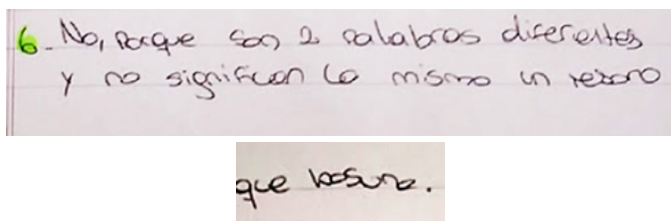 6. No, porque son 2 palabras diferentes
y no significan lo mismo un tesoro
que basura.